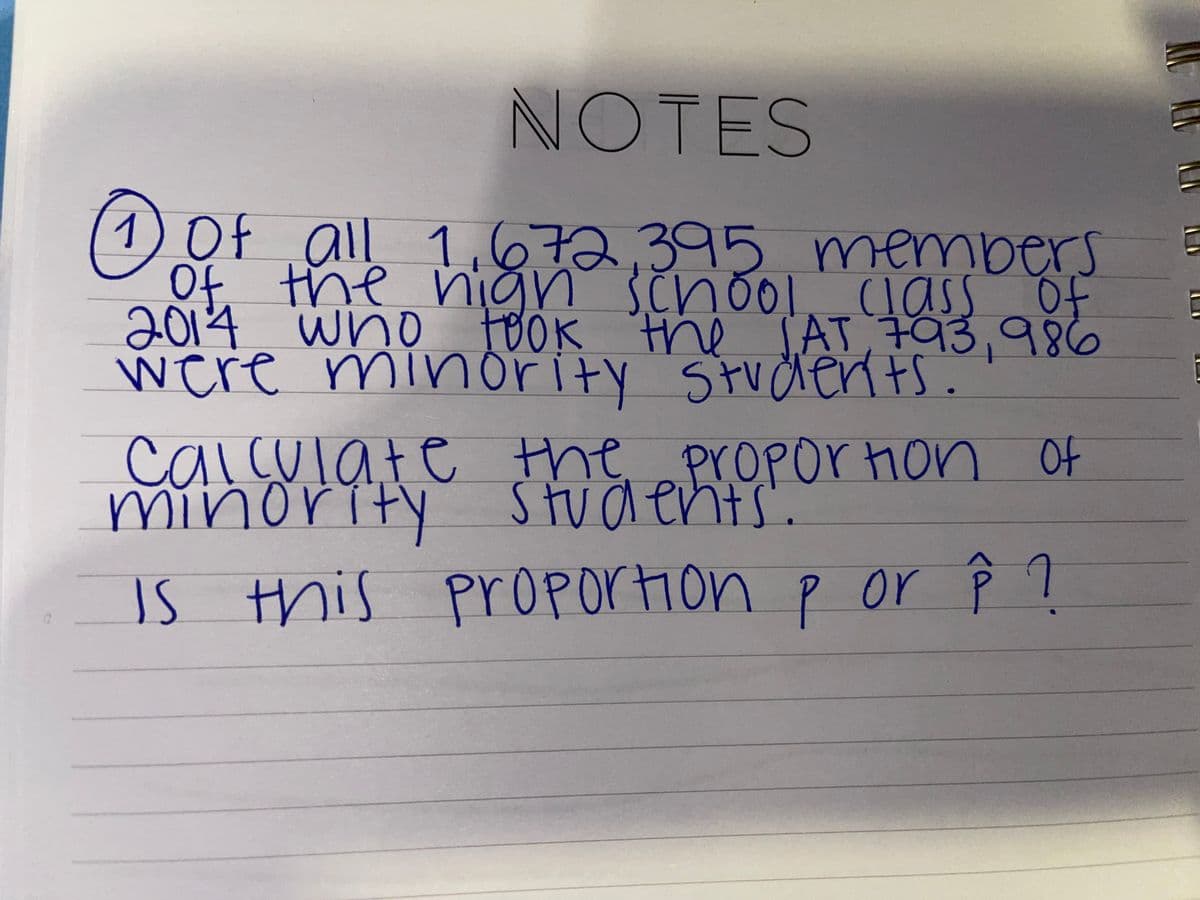 NOTES
① Of all 1,672,395 members
Of the high school class of
2014 who took the SAT, 793,986
were minority students.
Calculate the proportion of
minority students.
Is this proportion p or p̂ ?